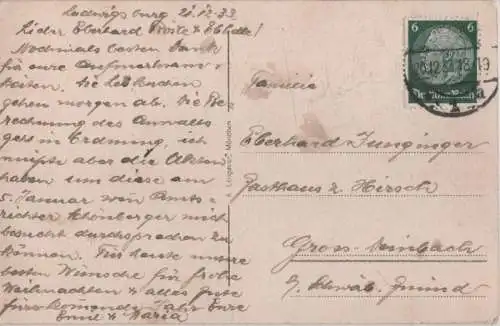 Ludwigsburg 21.12.33
Lieber Eberhard
Nochmals besten Dank
für eure Aufmerksam-
keiten. Die Lebkuchen
gehen morgen ab. Die Be-
rechnung des Anwalts
geht in Ordnung, ich
müsste aber die Akten
haben um diese am
5. Januar von Amts-
richter Schönberger mich
besucht durchsprechen zu
können. Für heute unsere
besten Wünsche für frohe
Weihnachten & alles Gute
fürs kommende Jahr Eure
Emil & Maria
Lengauer, München
6 6
18-19
Familie
Eberhard Junginger
Gasthaus z. Hirsch
Gross-Deinbach
b/ Schwäb. Gmünd